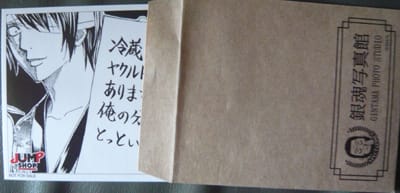 冷蔵
ヤクルト
ありま
俺の
とってい
JUMP
SHOP
NOT FOR SALE
銀魂写真館
GINTAMA PHOTO STUDIO